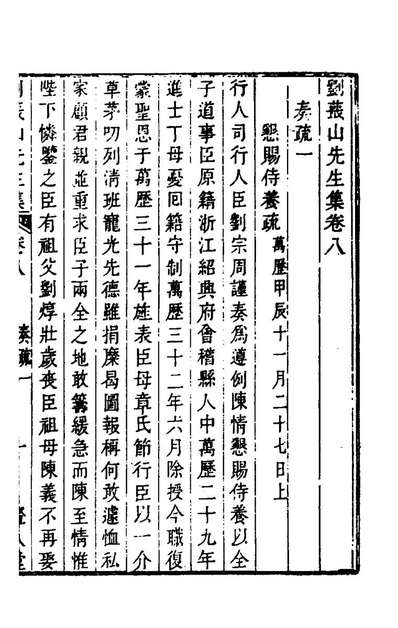 劉蕺山先生集卷八
奏疏一
懇賜侍養疏萬歷甲辰十一月二十七日上
行人司行人臣劉宗周謹奏爲遵例陳情懇賜侍養以全
子道事臣原籍浙江紹興府會稽縣人中萬歷二十九年
進士丁母憂囘籍守制萬歷三十二年六月除授今職復
蒙聖恩于萬歷三十一年旌表臣母章氏節行臣以一介
草茅叨列清班寵光先德雖捐糜曷圖報稱何敢遽恤私
家顧君親並重求臣子兩全之地敢籌緩急而陳至情惟
陛下憐鑒之臣有祖父劉焞壯歲喪臣祖母陳義不再娶
劉蕺山先生集 卷八 奏疏一 一